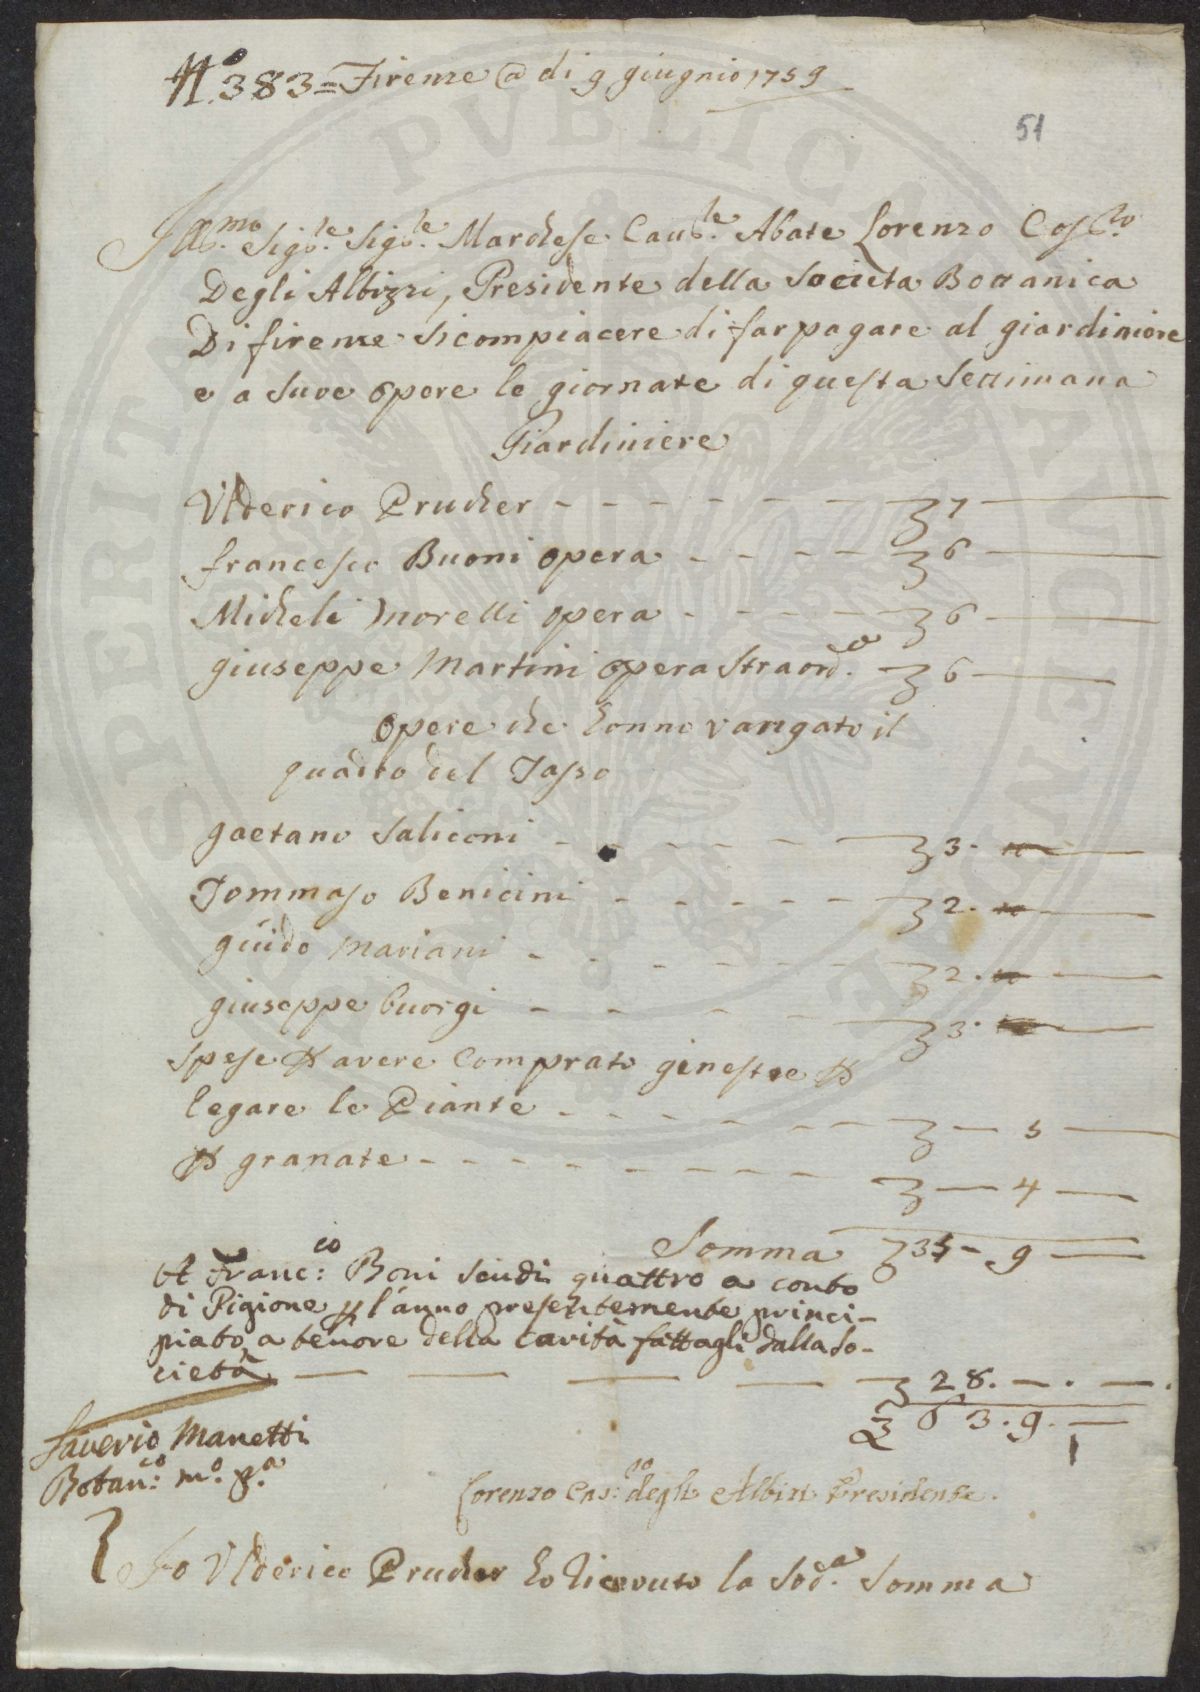 N.º 383 = Firenze @ di 9 giugnio 1759
51
Ill.mo Sig.re Sig.re Marchese Caul.re Abate Lorenzo
Degli Albizzi, Presidente della Societa Bottanica
Di firenze si compiacere di far pagare al giardiniere
e a sue opere le giornate di questa Settimana
Giardiniere
Ulderico Prucher - - - - - - ʒ 7 —
francesco Buoni opera - - - - ʒ 6 —
Micheli Morelli opera - - - - ʒ 6 —
giuseppe Martini opera straord.a - ʒ 6 —
opere che hanno vangato il
quadro del Tasso
gaetano Saliconi - - - - - - ʒ 3. —
Tommaso Benicini - - - - - ʒ 2. —
guido Mariani - - - - - - ʒ 2. —
giuseppe buorgi - - - - - ʒ 3. —
Spese ꝑ avere Comprato ginestre ꝑ
legare le Piante - - - - - - ʒ — 5 —
ꝑ granate - - - - - - - - ʒ — 4 —
Somma ʒ 35 - 9 —
A Franc:co Boni scudi quattro a conto
di Pigione ꝑ l'anno presentemente princi-
piato, a tenore della carità fattagli dalla So-
cietà — — — — — ʒ 28. — . — .
ʒ 63. 9. —
Saverio Manetti
Botan:co m.o p.a
Lorenzo Cas:ro degli Albizi Presidente.
Io Ulderico Prucher ho riceuuto la Sod.a Somma